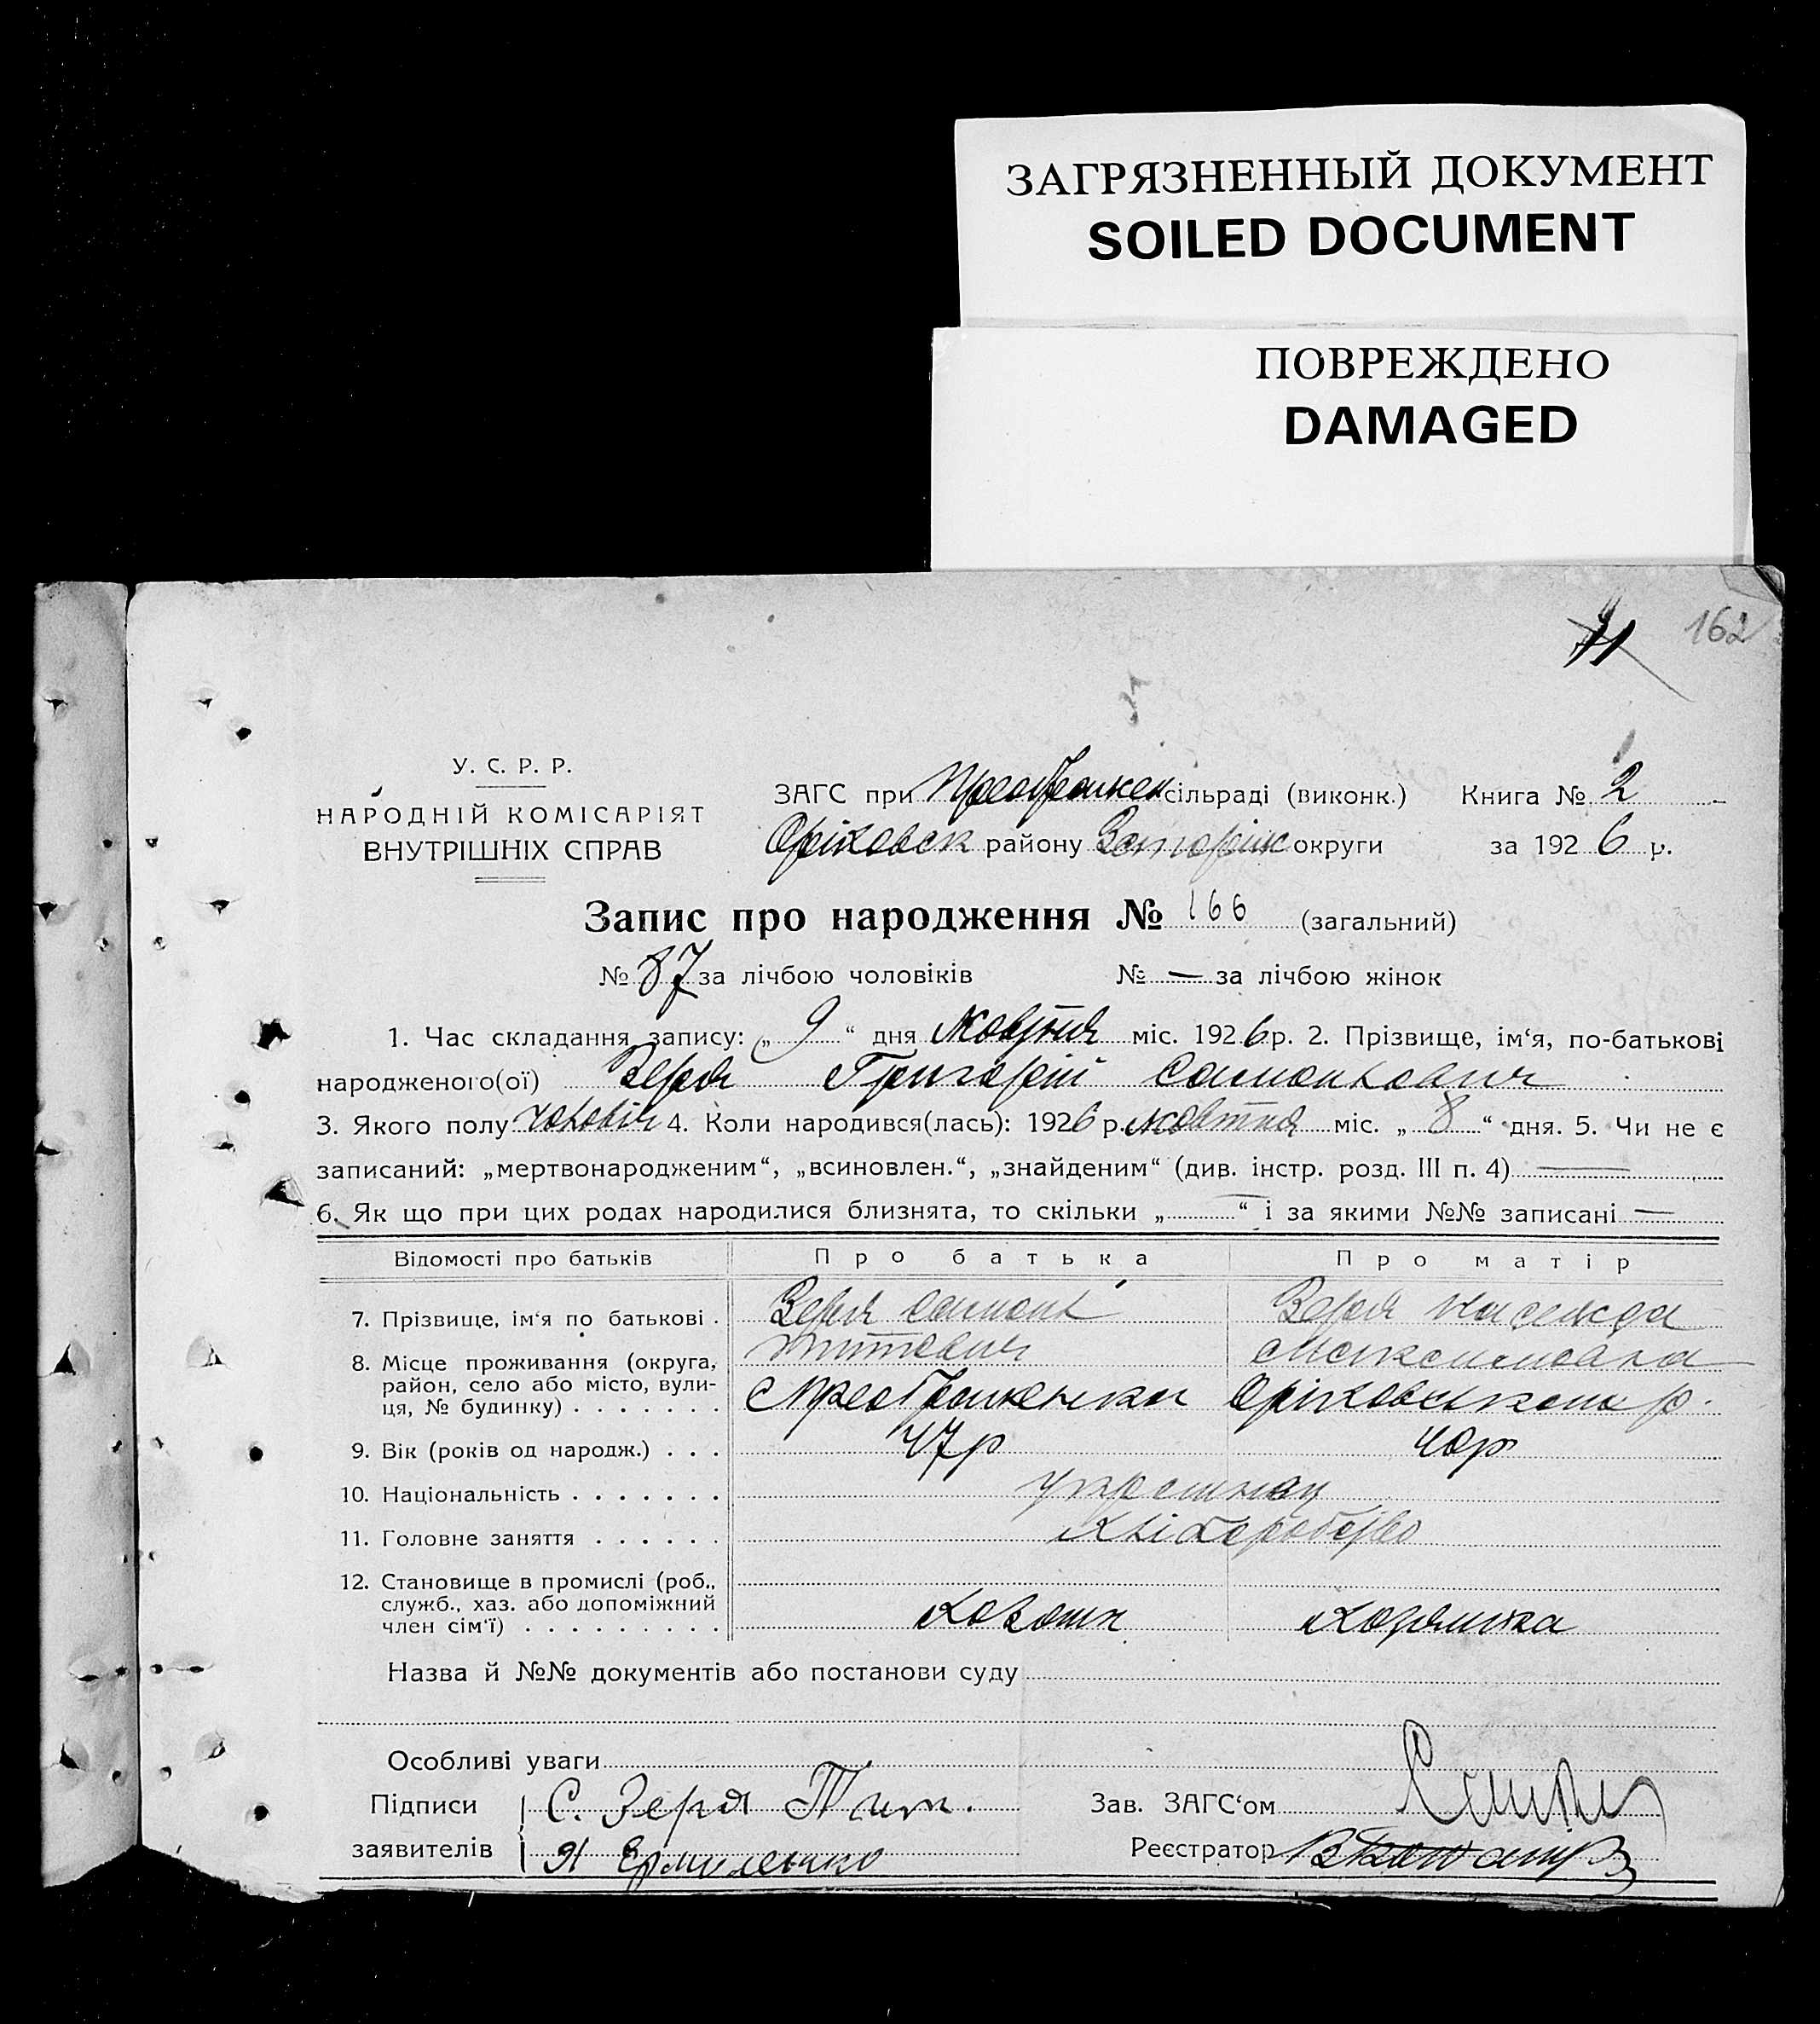 ЗАГРЯЗНЕННЫЙ ДОКУМЕНТ
SOILED DOCUMENT
ПОВРЕЖДЕНО
DAMAGED
162
У. С. Р. Р.
НАРОДНІЙ КОМІСАРІЯТ
ВНУТРІШНІХ СПРАВ
ЗАГС при Преображен сільраді (виконк.) Книга № 2
Оріховськ району Запоріж округи за 1926 р.
Запис про народження № 166 (загальний)
№ 87 за лічбою чоловіків № — за лічбою жінок
1. Час складання запису: „ 9 “ дня Жовтня міс. 1926 р. 2. Прізвище, ім‘я, по-батькові
народженого(ої) Зеря Григорій
3. Якого полу чоловіч 4. Коли народився(лась): 1926 р. жовтня міс. „ 8 “ дня. 5. Чи не є
записаний: „мертвонародженим“, „всиновлен.“, „знайденим“ (див. інстр. розд. III п. 4) —
6. Як що при цих родах народилися близнята, то скільки „ — “ і за якими №№ записані —
Відомості про батьків Про батька Про матір
7. Прізвище, ім‘я по батькові . Зеря Зеря
Титович
8. Місце проживання (округа,
район, село або місто, вули-
ця, № будинку) . . . . . . . с Преображенка Оріховського р.
9. Вік (років од народж.) . . . 47 р 40 р
10. Національність . . . . . . .
11. Головне заняття . . . . . . Хліборобство
12. Становище в промислі (роб.,
служб., хаз. або допоміжний
член сім‘ї) . . . . . . . . .
Назва й №№ документів або постанови суду
Особливі уваги
Підписи С. Зеря Тит. Зав. ЗАГС‘ом
заявителів Я Ермиленко Реєстратор